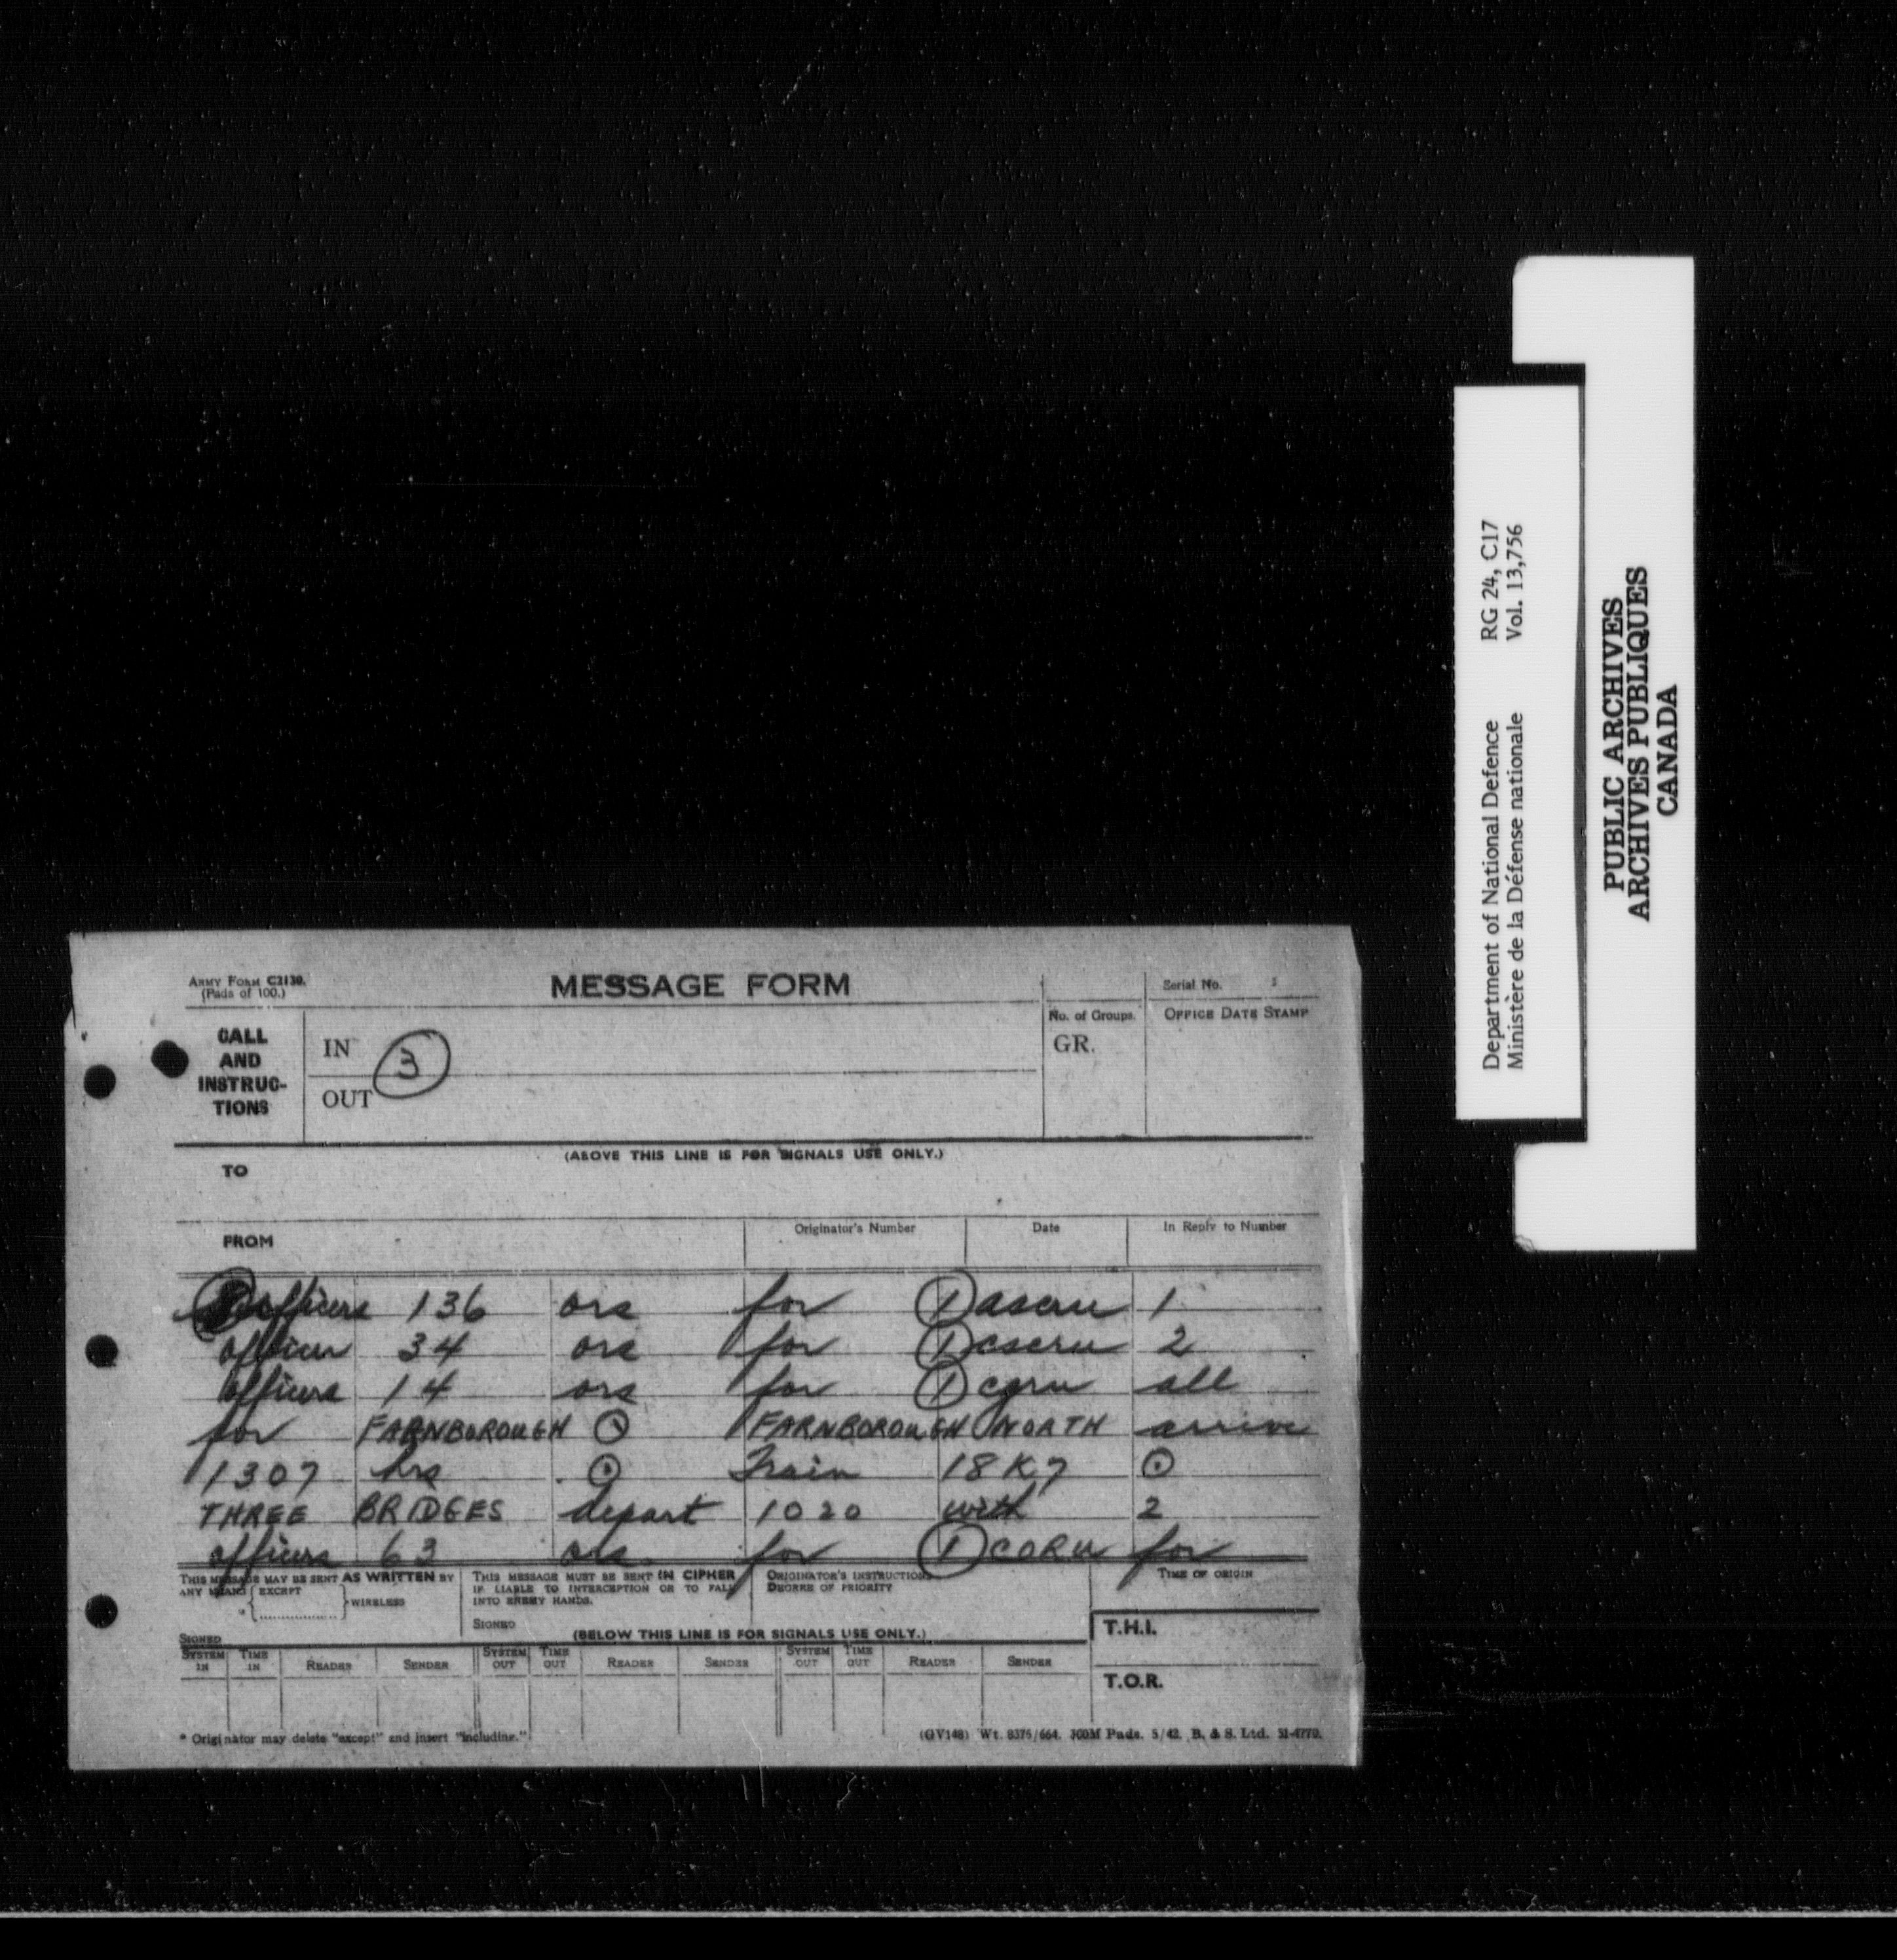 ARMY FORM C2130.
(Pads of 100.)
MESSAGE FORM
Serial No.
CALL
AND
INSTRUC-
TIONS
IN
3
OUT
No. of Groups.
GR.
OFFICE DATE STAMP
(ABOVE THIS LINE IS FOR SIGNALS USE ONLY.)
TO
FROM
Originator's Number
Date
In Reply to Number
officers 136 ors for 1 caseru 1
officer 34 ors for 1 cseru 2
officers 14 ors for 1 cgru all
for FARNBOROUGH ⊙ FARNBOROUGH NORTH arrive
1307 hrs ⊙ Train 18K7 ⊙
THREE BRIDGES depart 1020 with 2
officers 63 ors for 1 CORU for
THIS MESSAGE MAY BE SENT AS WRITTEN BY
ANY MEANS { EXCEPT
* { .................. } WIRELESS
SIGNED
THIS MESSAGE MUST BE SENT IN CIPHER
IF LIABLE TO INTERCEPTION OR TO FALL
INTO ENEMY HANDS.
SIGNED
ORIGINATOR'S INSTRUCTIONS
DEGREE OF PRIORITY
TIME OF ORIGIN
(BELOW THIS LINE IS FOR SIGNALS USE ONLY.)
T.H.I.
T.O.R.
SYSTEM IN TIME IN READER SENDER SYSTEM OUT TIME OUT READER SENDER SYSTEM OUT TIME OUT READER SENDER
* Originator may delete "except" and insert "including."
(GV148) Wt. 8375/664. 300M Pads. 5/42. B. & S. Ltd. 51-4770.
Department of National Defence RG 24, C17
Ministère de la Défense nationale Vol. 13,756
PUBLIC ARCHIVES
ARCHIVES PUBLIQUES
CANADA